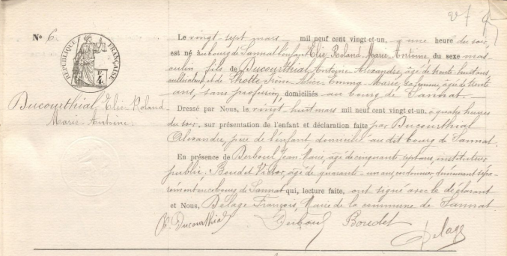 N° 6.
RÉPUBLIQUE FRANÇAISE
Ducourthial, Elie Roland
Marie Antoine
Le vingt sept mars, mil neuf cent vingt-et-un, à une heure du soir,
est né au bourg de Sannat l'enfant Elie Roland Marie Antoine, du sexe mas
culin, fils de Ducourthial Antoine Alexandre, âgé de trente huit ans,
et de Emma Maria sa femme, âgée de trente
ans, sans profession, domiciliés au bourg de Sannat.
Dressé par Nous, le vingt huit mars mil neuf cent vingt-et-un, à quatre heures
du soir, sur présentation de l'enfant et déclaration faite par Ducourthial
Alexandre, père de l'enfant, domicilié au dit bourg de Sannat.
En présence de Jean âgé de cinquante ans, instituteur
public, Victor, âgé de quarante
au bourg de Sannat qui, lecture faite, ont signé avec le déclarant
et Nous, Delage François, Maire de la commune de Sannat.
Ducourthial
Delage